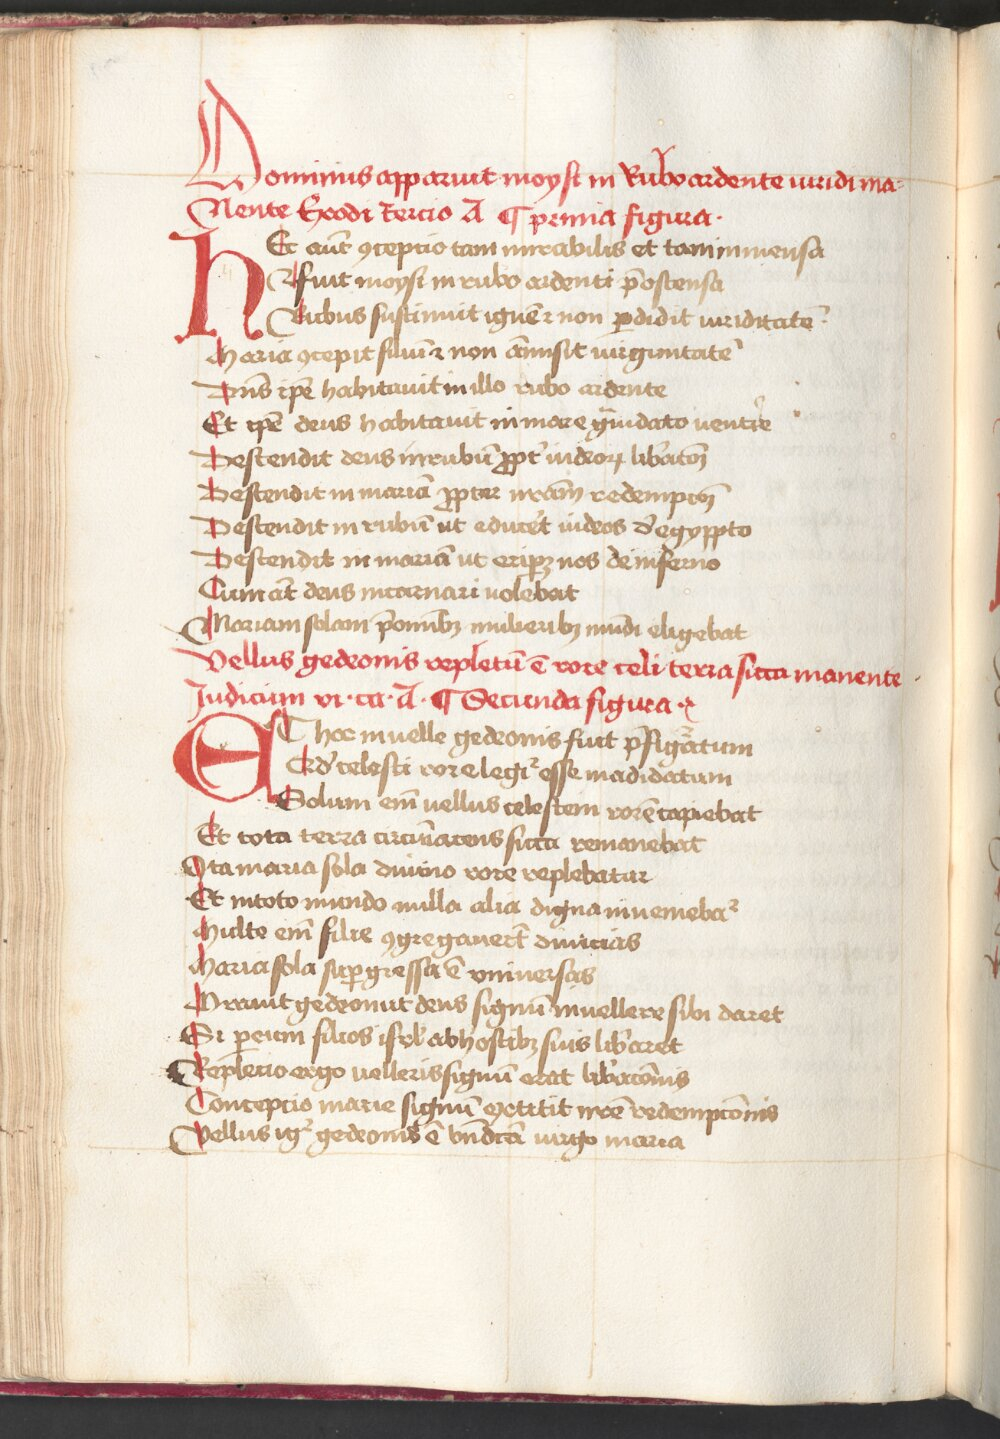 Dominus apparuit moysi in Rubo ardente uiridi ma=
Nente Exodi tercio A ¶ prima figura.
HEc aūt ꝯceptio tam mirabilis et tam immensa
Fuit moysi in rubo ardenti p̄ostensa
Rubus sustinuit ignē ⁊ non ꝑdidit uiriditatē.
Maria ꝯcepit filiū ⁊ non āmisit uirginitatē
Dn̄s ip̄e habitauit in illo rubo ardente
Et ip̄e deus habitauit in marie grauidato uentre
Descendit deus in rubū ꝓpt̓ iudeoꝝ lib̓atōꝫ
Descendit in mariā ꝓpter nr̄am redemptōꝫ
Descendit in rubū ut educ̓et iudeos d̓ egyppto
Descendit in mariā ut eriꝑꝫ nos de inferno
Cum āt deus incarnari uolebat
Mariam solam p̄ omībꝫ mulieribꝫ mūdi eligebat
Vellus gedeonis repletū ē rore celi terra sicca manente
Judicum vi. ca. A. ¶ Secunda figura.
ET hoc in uelle gedeonis fuit p̄figuratum
Qd̓ celesti rore legit̓ esse madidatum
Solum em̄ uellus celestem rorē capiebat
Et tota terra circūiacens sicca remanebat
Ita maria sola diuino rore replebatur
Et in toto mundo nulla alia digna inueniebat̓
Multe em̄ filie ꝯgregauer̄t diuicias
Maria sola suꝑgressa ē vniuersas
Orauit gedeon ut deus signū in uellere sibi daret
Si ꝑ eum filios isrl̓ ab hostibꝫ suis lib̓aret
Repletio ergo uelleris signū erat lib̓atōnis
Conceptio marie signū extitit nr̄e redemptōnis
Vellus igit̓ gedeonis ē bn̄dicta uirgo maria